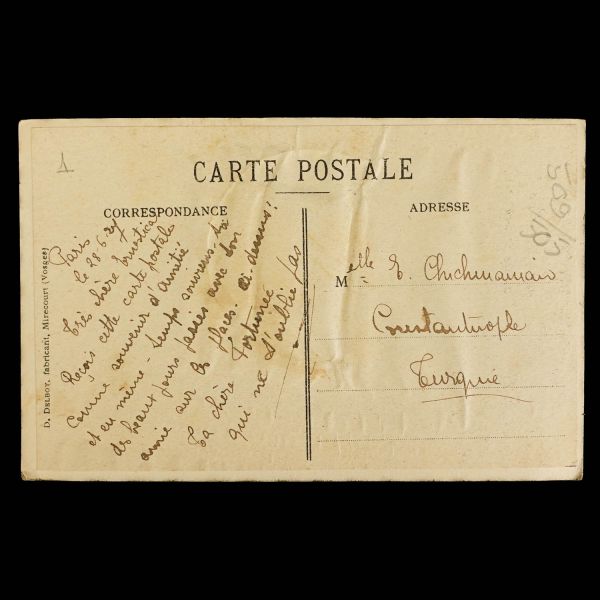 1
CARTE POSTALE
CORRESPONDANCE
ADRESSE
D. DELBOY, fabricant, Mirecourt (Vosges)
Paris
le 28.6.27
Très chère
Reçois cette carte postale
Comme souvenir d'Amitié
et en même-temps souviens toi
des beaux jours passés avec ton
amie sur les places. ci-dessus!
Ta chère Fortunée
qui ne t'oublie pas
Melle E.
Constantinople
Turquie